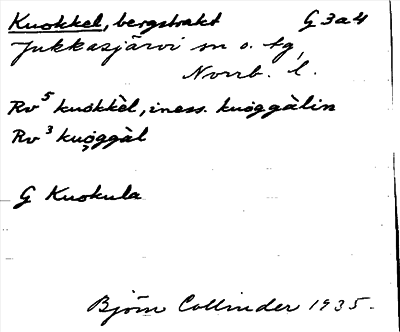 Kuokkel, bergstrakt G 3 a 4
Jukkasjärvi sn o. tg,
Norrb. l.
Rv⁵ kuokkèl, iness. kuoggàlin
Rv³ kuoggàl
G Kuokula
Björn Collinder 1935.